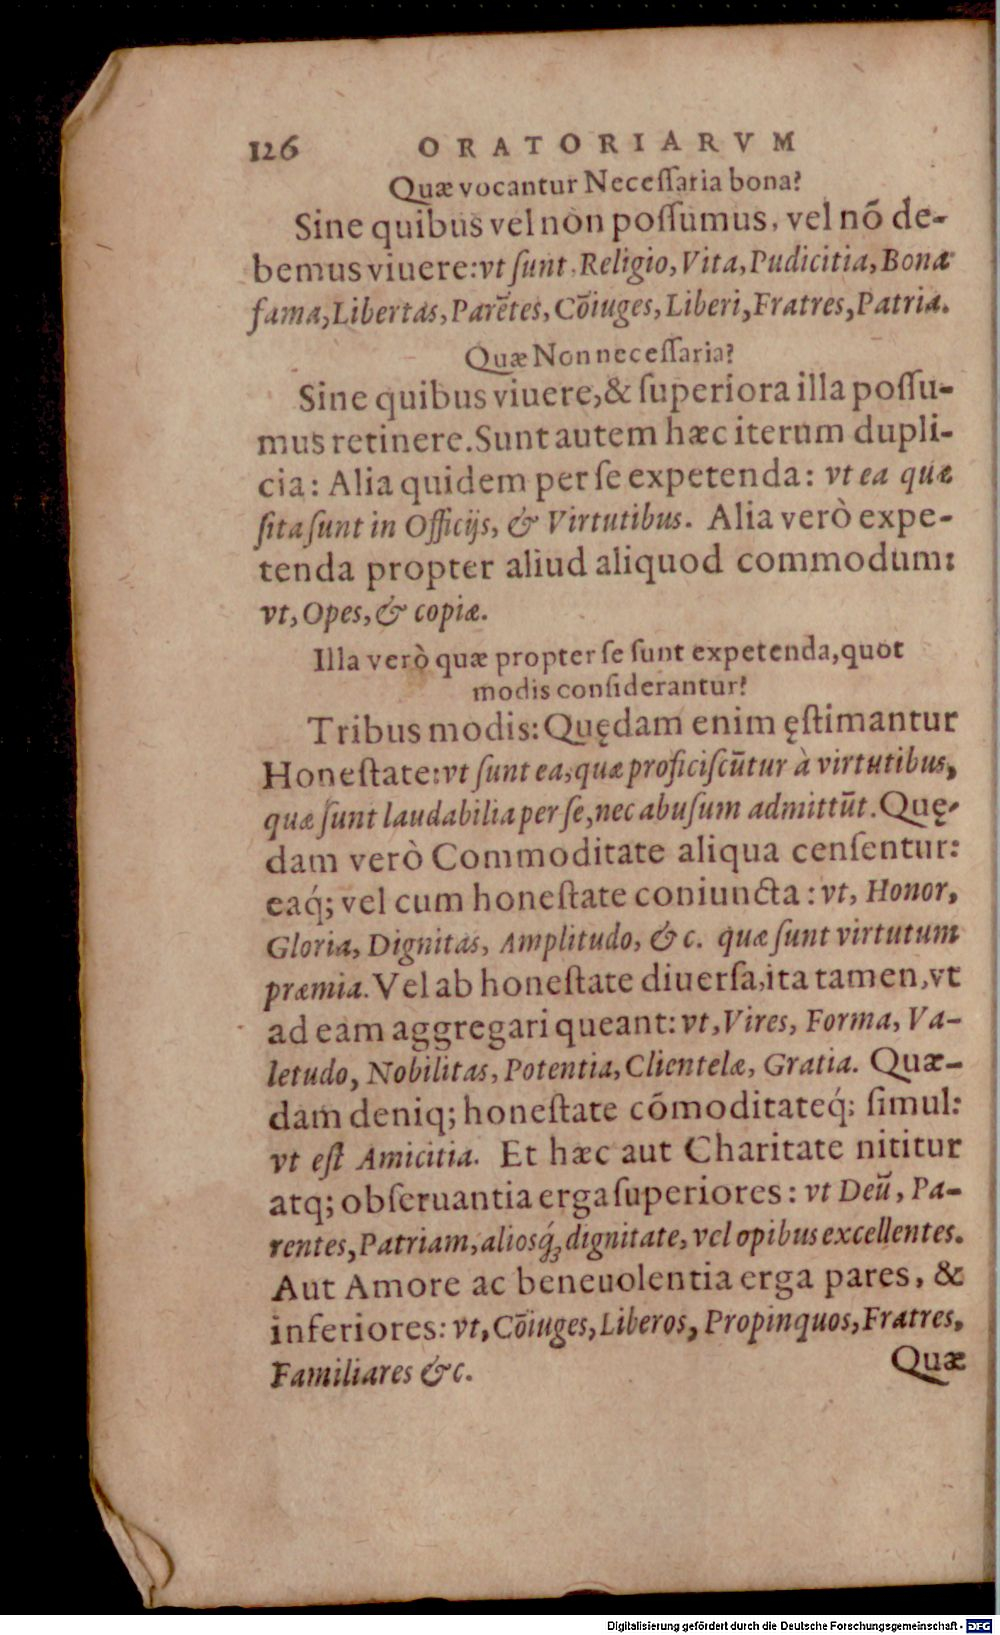 126 ORATORIARVM
Quæ vocantur Neceſſaria bona?
Sine quibus vel non poſſumus, vel nõ de-
bemus viuere: vt ſunt, Religio, Vita, Pudicitia, Bona
fama, Libertas, Parẽtes, Cõiuges, Liberi, Fratres, Patria.
Quæ Non neceſſaria?
Sine quibus viuere, & ſuperiora illa poſſu-
mus retinere. Sunt autem hæc iterum dupli-
cia: Alia quidem per ſe expetenda: vt ea quæ
ſita ſunt in Officijs, & Virtutibus. Alia verò expe-
tenda propter aliud aliquod commodum:
vt, Opes, & copiæ.
Illa verò quæ propter ſe ſunt expetenda, quot
modis conſiderantur?
Tribus modis: Quędam enim ęſtimantur
Honeſtate: vt ſunt ea, quæ proficiſcũtur à virtutibus,
quæ ſunt laudabilia per ſe, nec abuſum admittũt. Quę-
dam verò Commoditate aliqua cenſentur:
eaq́; vel cum honeſtate coniuncta: vt, Honor,
Gloria, Dignitas, Amplitudo, &c. quæ ſunt virtutum
præmia. Vel ab honeſtate diuerſa, ita tamen, vt
ad eam aggregari queant: vt, Vires, Forma, Va-
letudo, Nobilitas, Potentia, Clientelæ, Gratia. Quæ-
dam deniq; honeſtate cõmoditateq́; ſimul:
vt eſt Amicitia. Et hæc aut Charitate nititur
atq; obſeruantia erga ſuperiores: vt Deũ, Pa-
rentes, Patriam, aliosq́; dignitate, vel opibus excellentes.
Aut Amore ac beneuolentia erga pares, &
inferiores: vt, Cõiuges, Liberos, Propinquos, Fratres,
Familiares &c.
Quæ
Digitalisierung gefördert durch die Deutsche Forschungsgemeinschaft - DFG